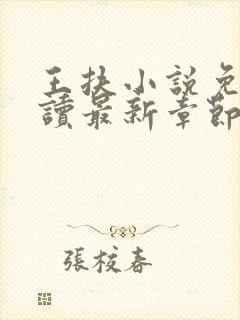 王扶小說免
讀最新章節
張校春